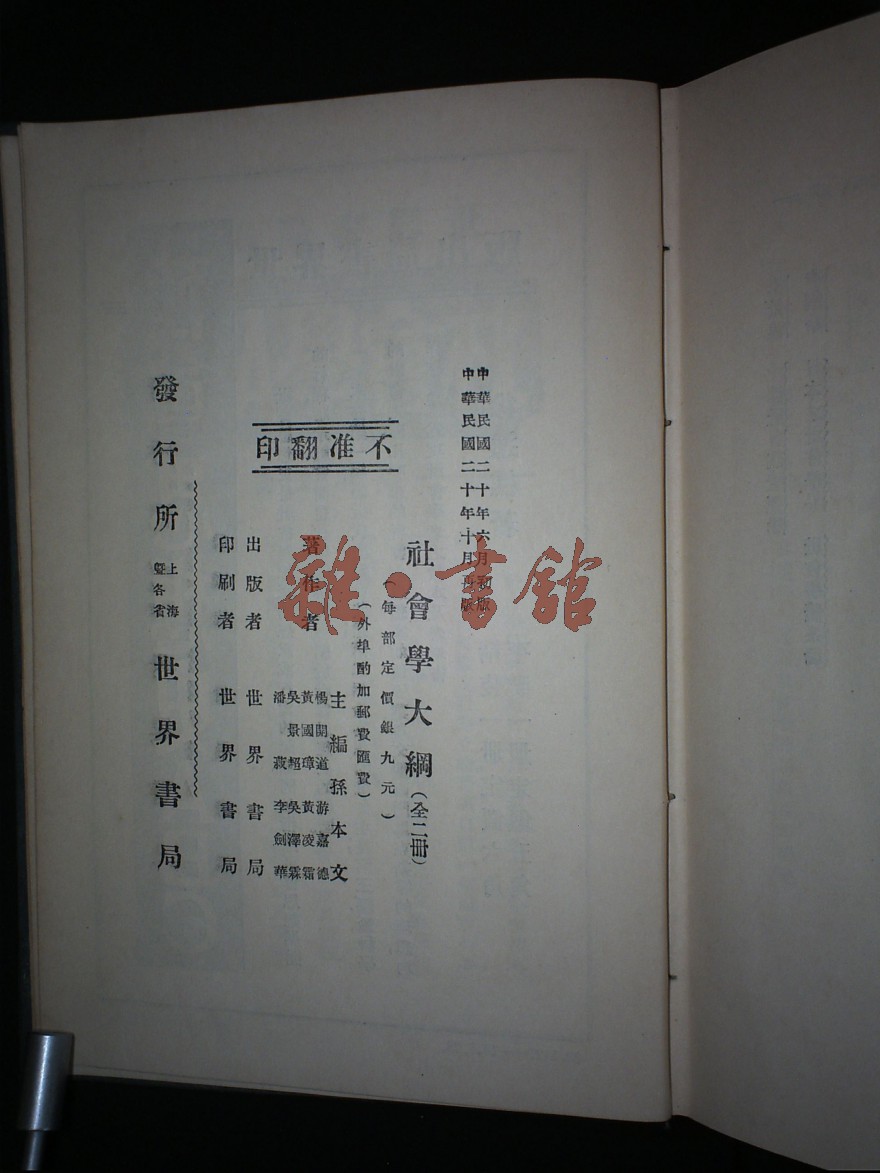 中華民國二十年六月初版
中華民國二十年十月再版
社會學大綱(全二冊)
(每部定價銀九元)
(外埠酌加郵費匯費)
不准翻印
著作者
主編孫本文
楊開道 游嘉德
黃國璋 黃凌霜
吳景超 吳澤霖
潘菽 李劍華
出版者 世界書局
印刷者 世界書局
發行所 上海暨各省 世界書局
雜·書館